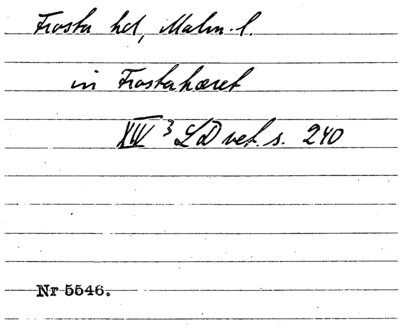 Frosta hd, Malm. l.
in Frostahæret
XIV 3 LD vet. s. 240
Nr 5546.